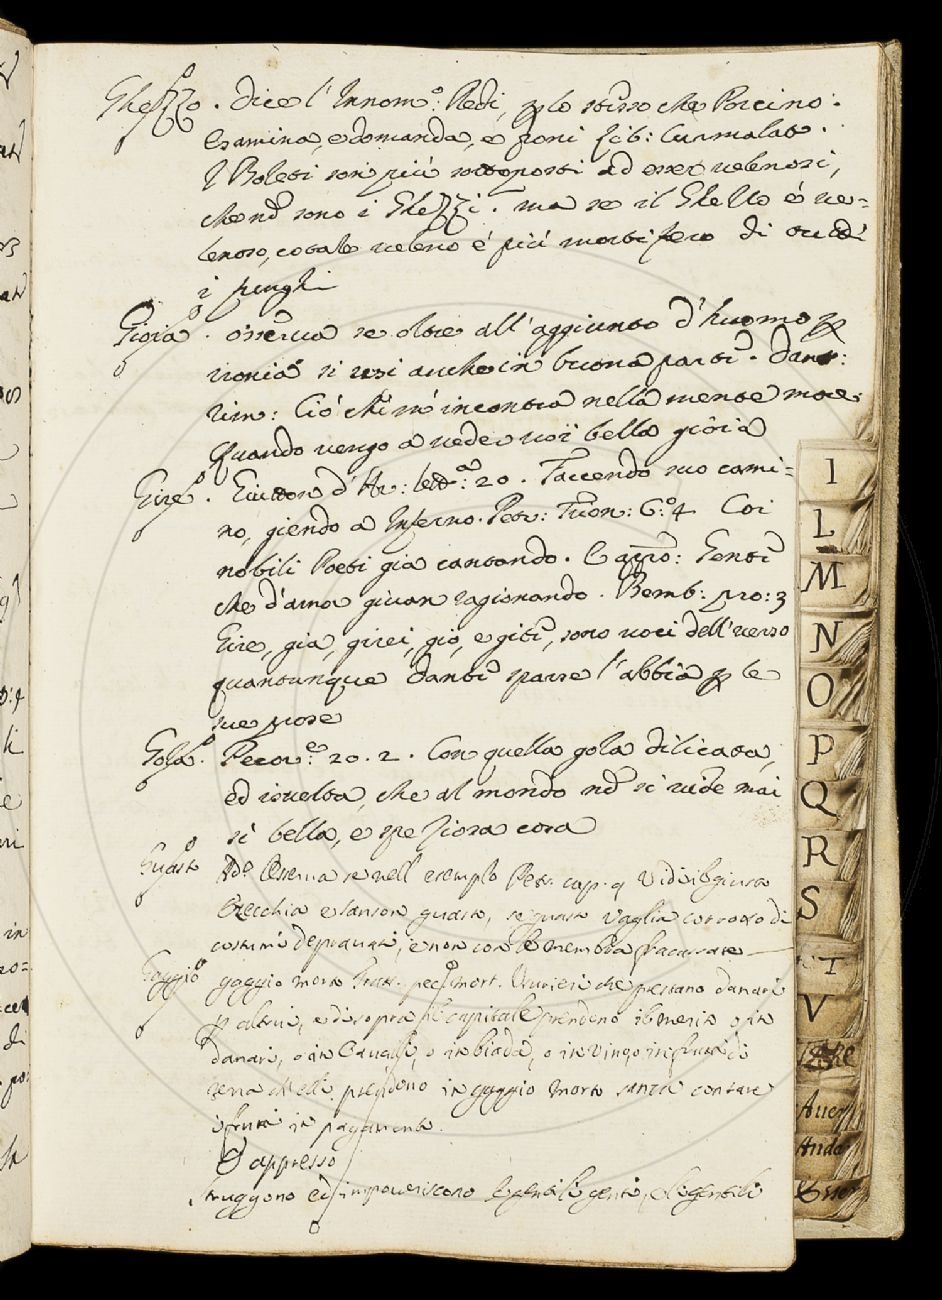 Ghezzo. Dice l'Innom.o Redi, p lo stesso che Porcino.
esamina, e domanda, e poni
I Boleti son più sottoposti ad esser velenosi,
che nō sono i Ghezzi. ma se il Ghezzo è ve=
lenoso, cotale veleno é più mortifero di tutti
i funghi
Gioia. osserva se oltre all'aggiunto d'huomo p
ironia si usi anche in buona parte. Dant:
rim: Ciò che m'incontra nella mente more.
Quando vengo a veder voi bella gioia
Gire. Guitton d'Ar: lett: 20. Faccendo suo cami=
no, giendo a Inferno. Petr: Trion: C: 4 Coi
nobili Poeti gia cantando. E appo: Genti
che d'amor givan ragionando. Bemb: pro: 3
Gire, gia, girei, gio, e giti, sono voci dell'verso
quantunque Danti sparse l'abbia p le
sue prose
Gola. Pecor.e 20. 2. Con quella gola dilicata,
ed isvelta, che al mondo nō si vide mai
si bella, e speziosa cosa
Guasto Osserva se nell esempio Petr. cap. 9 Vidi
Ezecchia e Sanson guasto, se guasto vaglia corrotto di
costumi depravati, e non con le membra fracassate
Gaggio gaggio morto Tratt. pecc. mort. Usurieri che prestano danari
p altrui, e di sopra il capitale prendono il merito o in
danari, o in Cavalli, o in biada, o in vino, in frutti di
terra che elli prendono in gaggio morto sanza contare
i frutti in pagamento.
E appresso
struggono ed impoveriscono le gentili genti, e le gentili
I
L
M
N
O
P
Q
R
S
T
V
Aver
Anda